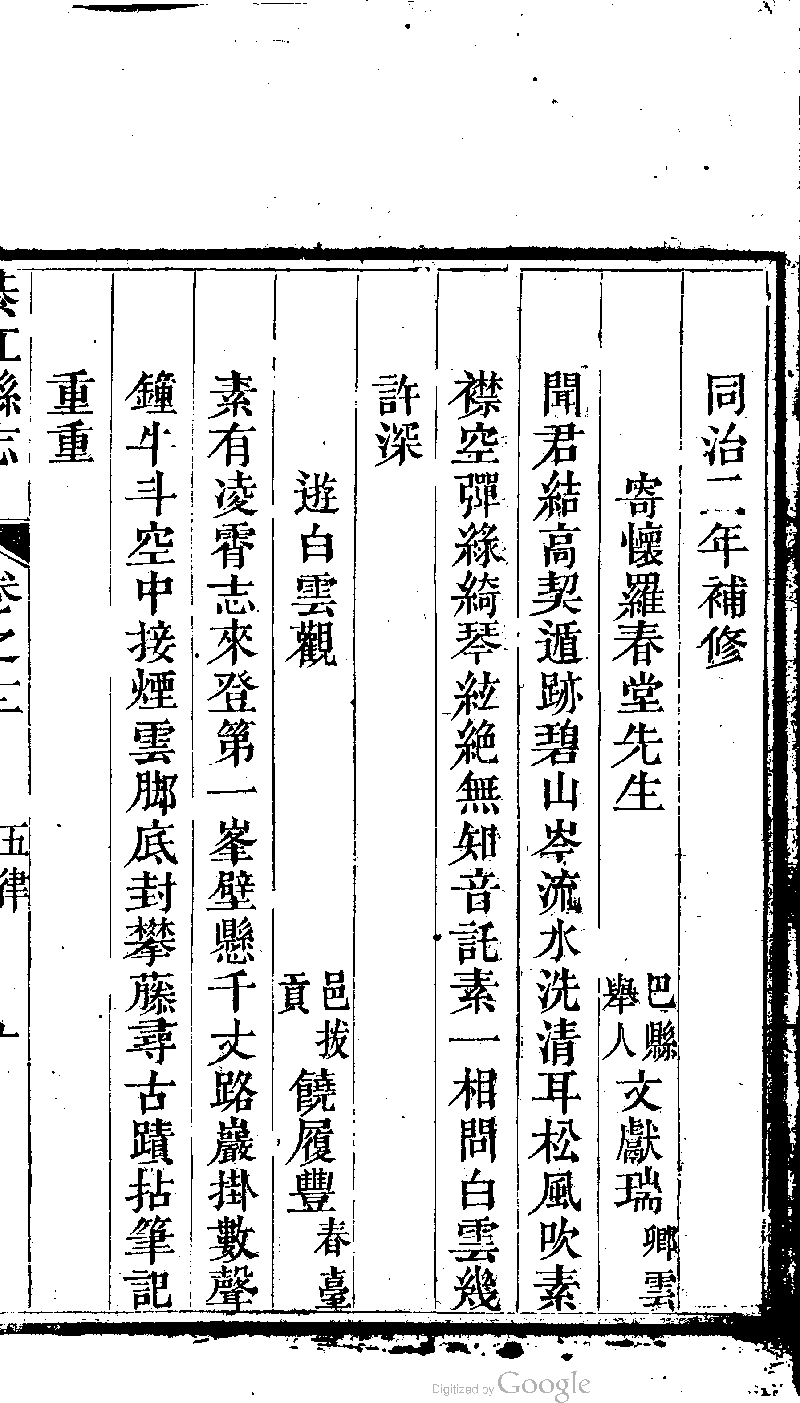 同治二年補修
寄懷羅春堂先生 巴縣舉人文獻瑞卿雲
聞君結高契遁跡碧山岑流水洗清耳松風吹素
襟空彈綠綺琴絃絶無知音託素一相問白雲幾
許深
遊白雲觀 邑拔貢饒履豐春臺
素有凌霄志來登第一峯壁懸千丈路巖掛數聲
鐘牛斗空中接煙雲脚底封攀藤尋古蹟拈筆記
重重
綦江縣志 卷之 五律
Digitized by Google